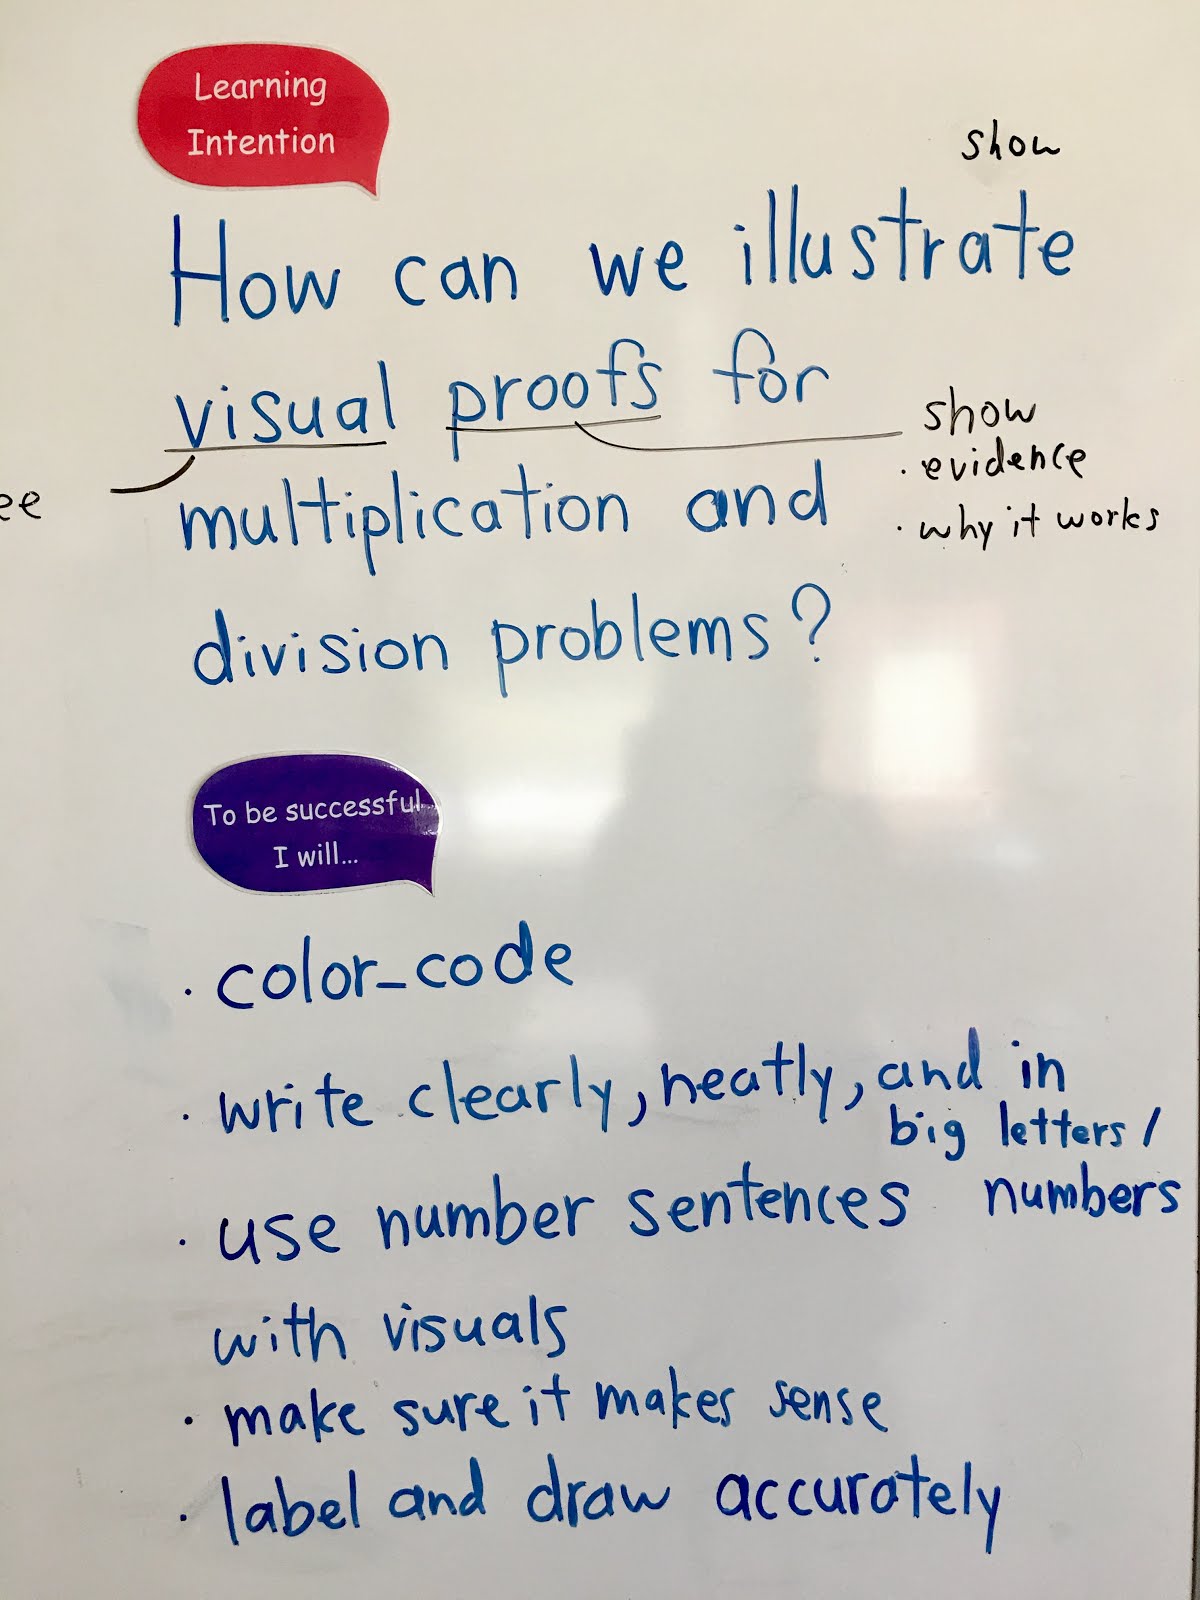 Learning
Intention
show
How can we illustrate
visual proofs for
show
· evidence
· why it works
ee
multiplication and
division problems?
To be successful
I will...
· color-code
· write clearly, neatly, and in
big letters/
numbers
· use number sentences
with visuals
· make sure it makes sense
· label and draw accurately